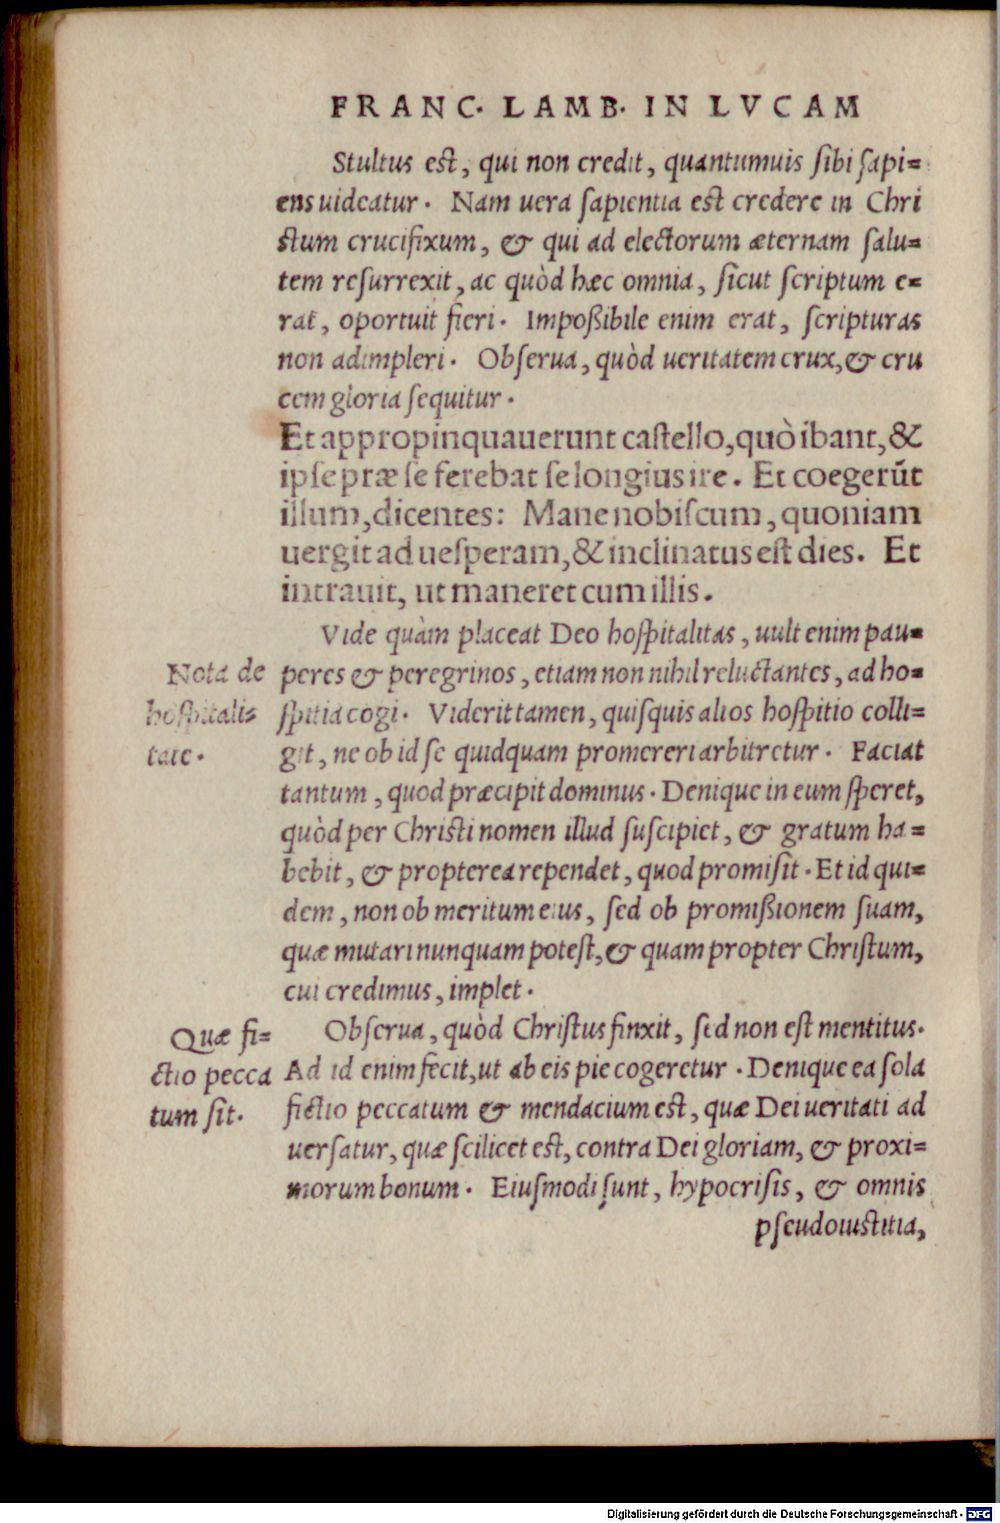 FRANC. LAMB. IN LVCAM
Stultus est, qui non credit, quantumuis sibi sapi=
ens uideatur. Nam uera sapientia est credere in Chri
stum crucifixum, & qui ad electorum æternam salu=
tem resurrexit, ac quòd hæc omnia, sicut scriptum e=
rat, oportuit fieri. Impoßibile enim erat, scripturas
non adimpleri. Obserua, quòd ueritatem crux, & cru
cem gloria sequitur.
Et appropinquauerunt castello, quò ibant, &
ipse præ se ferebat se longius ire. Et coegerūt
illum, dicentes: Mane nobiscum, quoniam
uergit ad uesperam, & inclinatus est dies. Et
intrauit, ut maneret cum illis.
Vide quàm placeat Deo hospitalitas, uult enim pau=
peres & peregrinos, etiam non nihil reluctantes, ad ho=
spitia cogi. Viderit tamen, quisquis alios hospitio colli=
git, ne ob id se quidquam promereri arbitretur. Faciat
tantum, quod præcipit dominus. Denique in eum speret,
quòd per Christi nomen illud suscipiet, & gratum ha=
bebit, & propterea rependet, quod promisit. Et id qui=
dem, non ob meritum eius, sed ob promißionem suam,
quæ mutari nunquam potest, & quam propter Christum,
cui credimus, implet.
Obserua, quòd Christus finxit, sed non est mentitus.
Ad id enim fecit, ut ab eis pie cogeretur. Denique ea sola
fictio peccatum & mendacium est, quæ Dei ueritati ad
uersatur, quæ scilicet est, contra Dei gloriam, & proxi=
morum bonum. Eiusmodi sunt, hypocrisis, & omnis
pseudoiustitia,
Nota de
hospitalis
tate.
Quæ fi=
ctio pecca
tum sit.
Digitalisierung gefördert durch die Deutsche Forschungsgemeinschaft - DFG